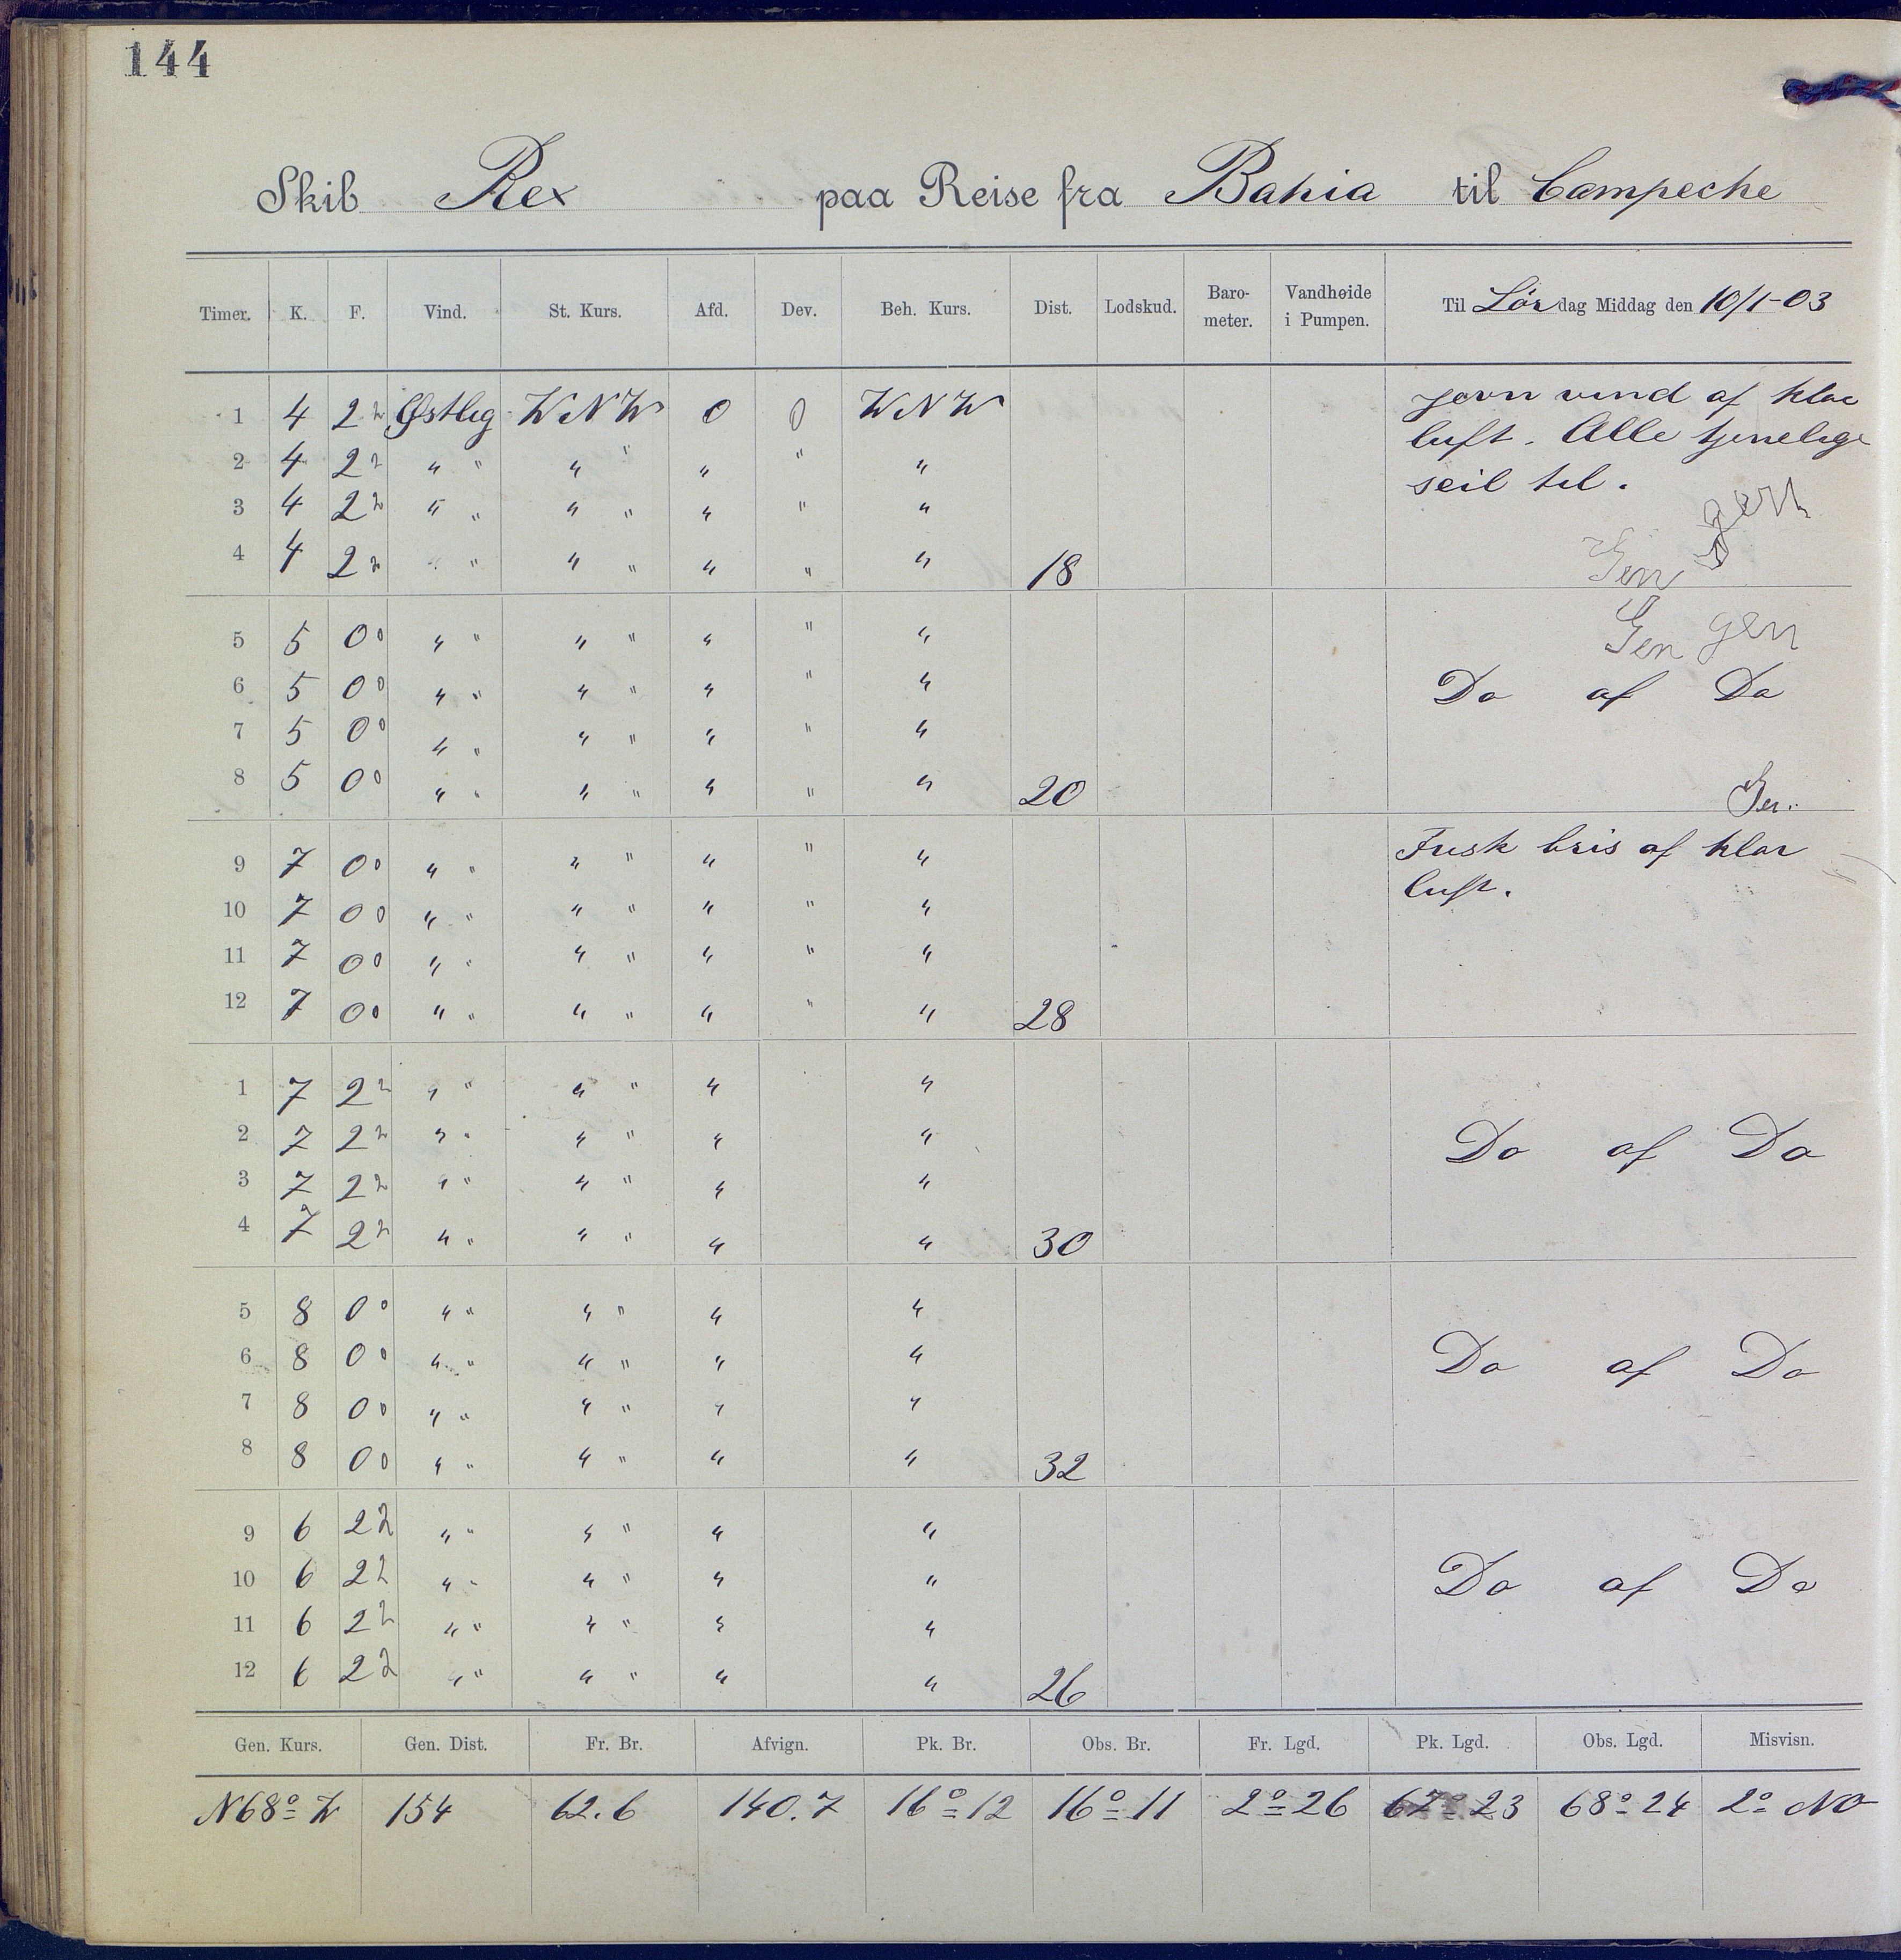 144
Skib Rex paa Reise fra Bahia til Campeche
Timer. K. F. Vind. St. Kurs. Afd. Dev. Beh. Kurs. Dist. Lodskud. Baro-meter. Vandhøide i Pumpen. Til Lørdag Middag den 10/1-03
1 4 2 2 Østlig WNW 0 0 WNW jevn vind af klar
luft. Alle tjenelige
2 4 2 2 " " " " " " "
seil til.
3 4 2 2 " " " " " " "
gen
4 4 2 2 " " " " " " " 18
Gen
Gen gen
5 5 0 0 " " " " " " "
6 5 0 0 " " " " " " " Do af Do
7 5 0 0 " " " " " " "
8 5 0 0 " " " " " " " 20
Ger.
9 7 0 0 " " " " " " " Frisk bris af klar
luft.
10 7 0 0 " " " " " " "
11 7 0 0 " " " " " " "
12 7 0 0 " " " " " " " 28
1 7 2 2 " " " " " "
2 7 2 2 " " " " " " Do af Do
3 7 2 2 " " " " " "
4 7 2 2 " " " " " " 30
5 8 0 0 " " " " " "
6 8 0 0 " " " " " " Do af Do
7 8 0 0 " " " " " "
8 8 0 0 " " " " " " 32
9 6 2 2 " " " " " "
10 6 2 2 " " " " " " Do af Do
11 6 2 2 " " " " " "
12 6 2 2 " " " " " " 26
Gen. Kurs. Gen. Dist. Fr. Br. Afvign. Pk. Br. Obs. Br. Fr. Lgd. Pk. Lgd. Obs. Lgd. Misvisn.
N68° W 154 62.6 140.7 16° 12 16° 11 2° 26 67° 23 68° 24 2° NO